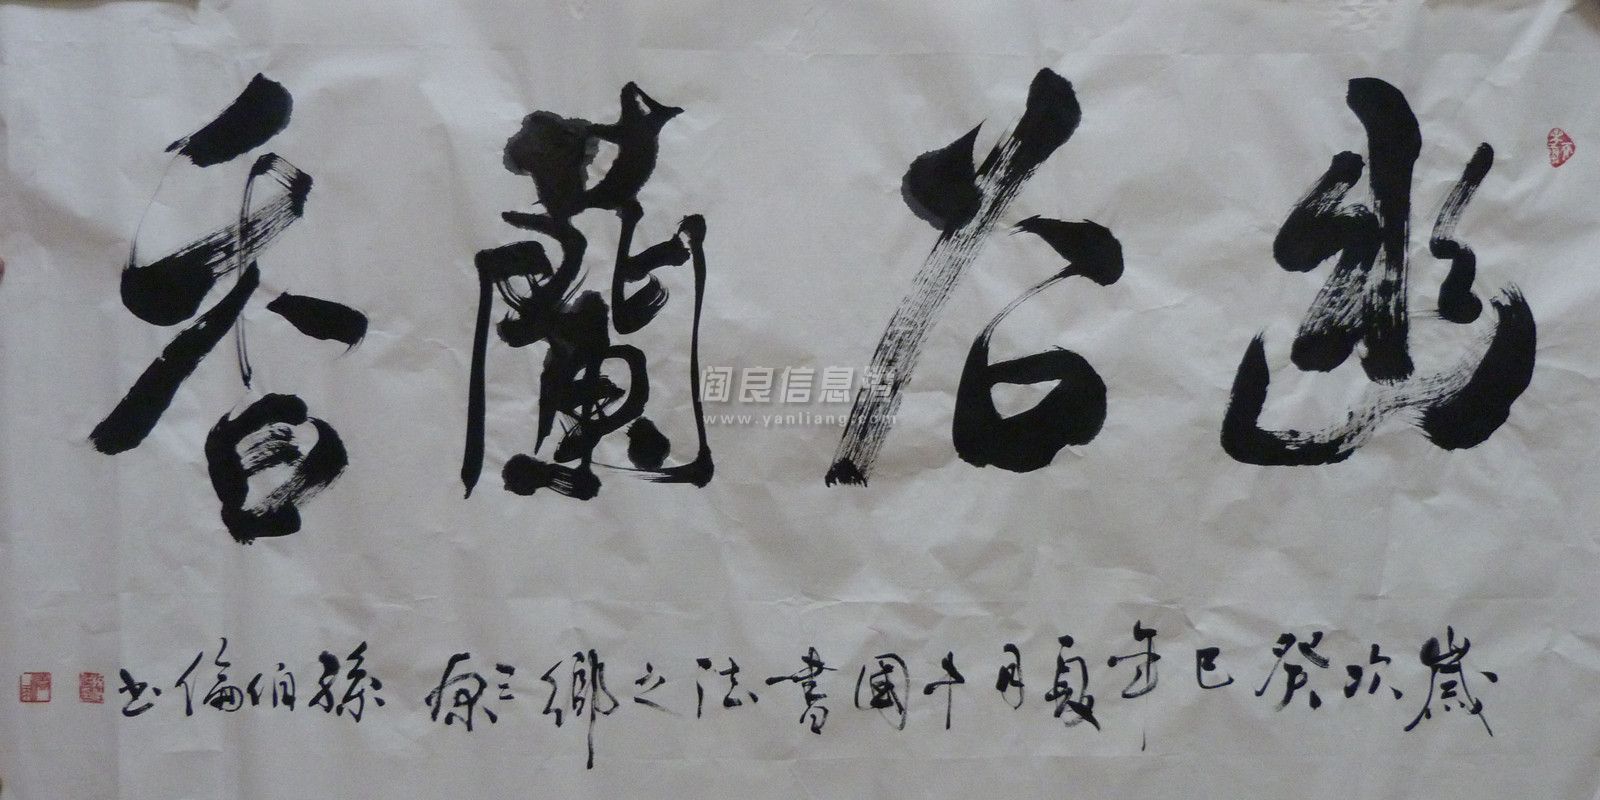 幽谷蘭香
歲次癸巳年夏月中國書法之鄉三原孫伯倫书
阎良信息港
www.yanliang.com